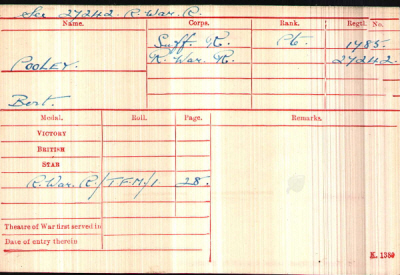 See 27242 R. War. R.
Name. Corps. Rank. Regtl. No.
Suff. R. Pte. 1985.
R. War. R. 27242.
Pooley.
Bert.
Medal. Roll. Page. Remarks.
Victory
British
Star
R. War. R./T.F.M/1 28.
Theatre of War first served in
Date of entry therein
K. 1380